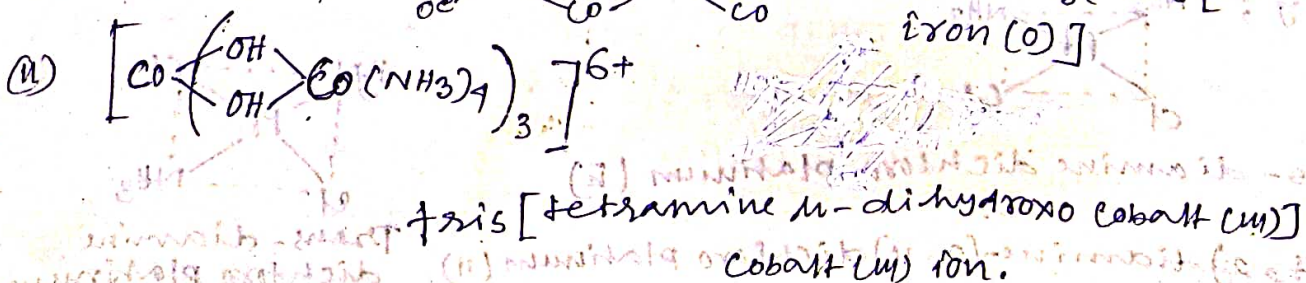 oc CO CO
iron (0)]
(11) [Co(OH OH Co(NH3)4)3]6+
tris [tetramine μ-dihydroxo cobalt (III)]
cobalt (III) ion.